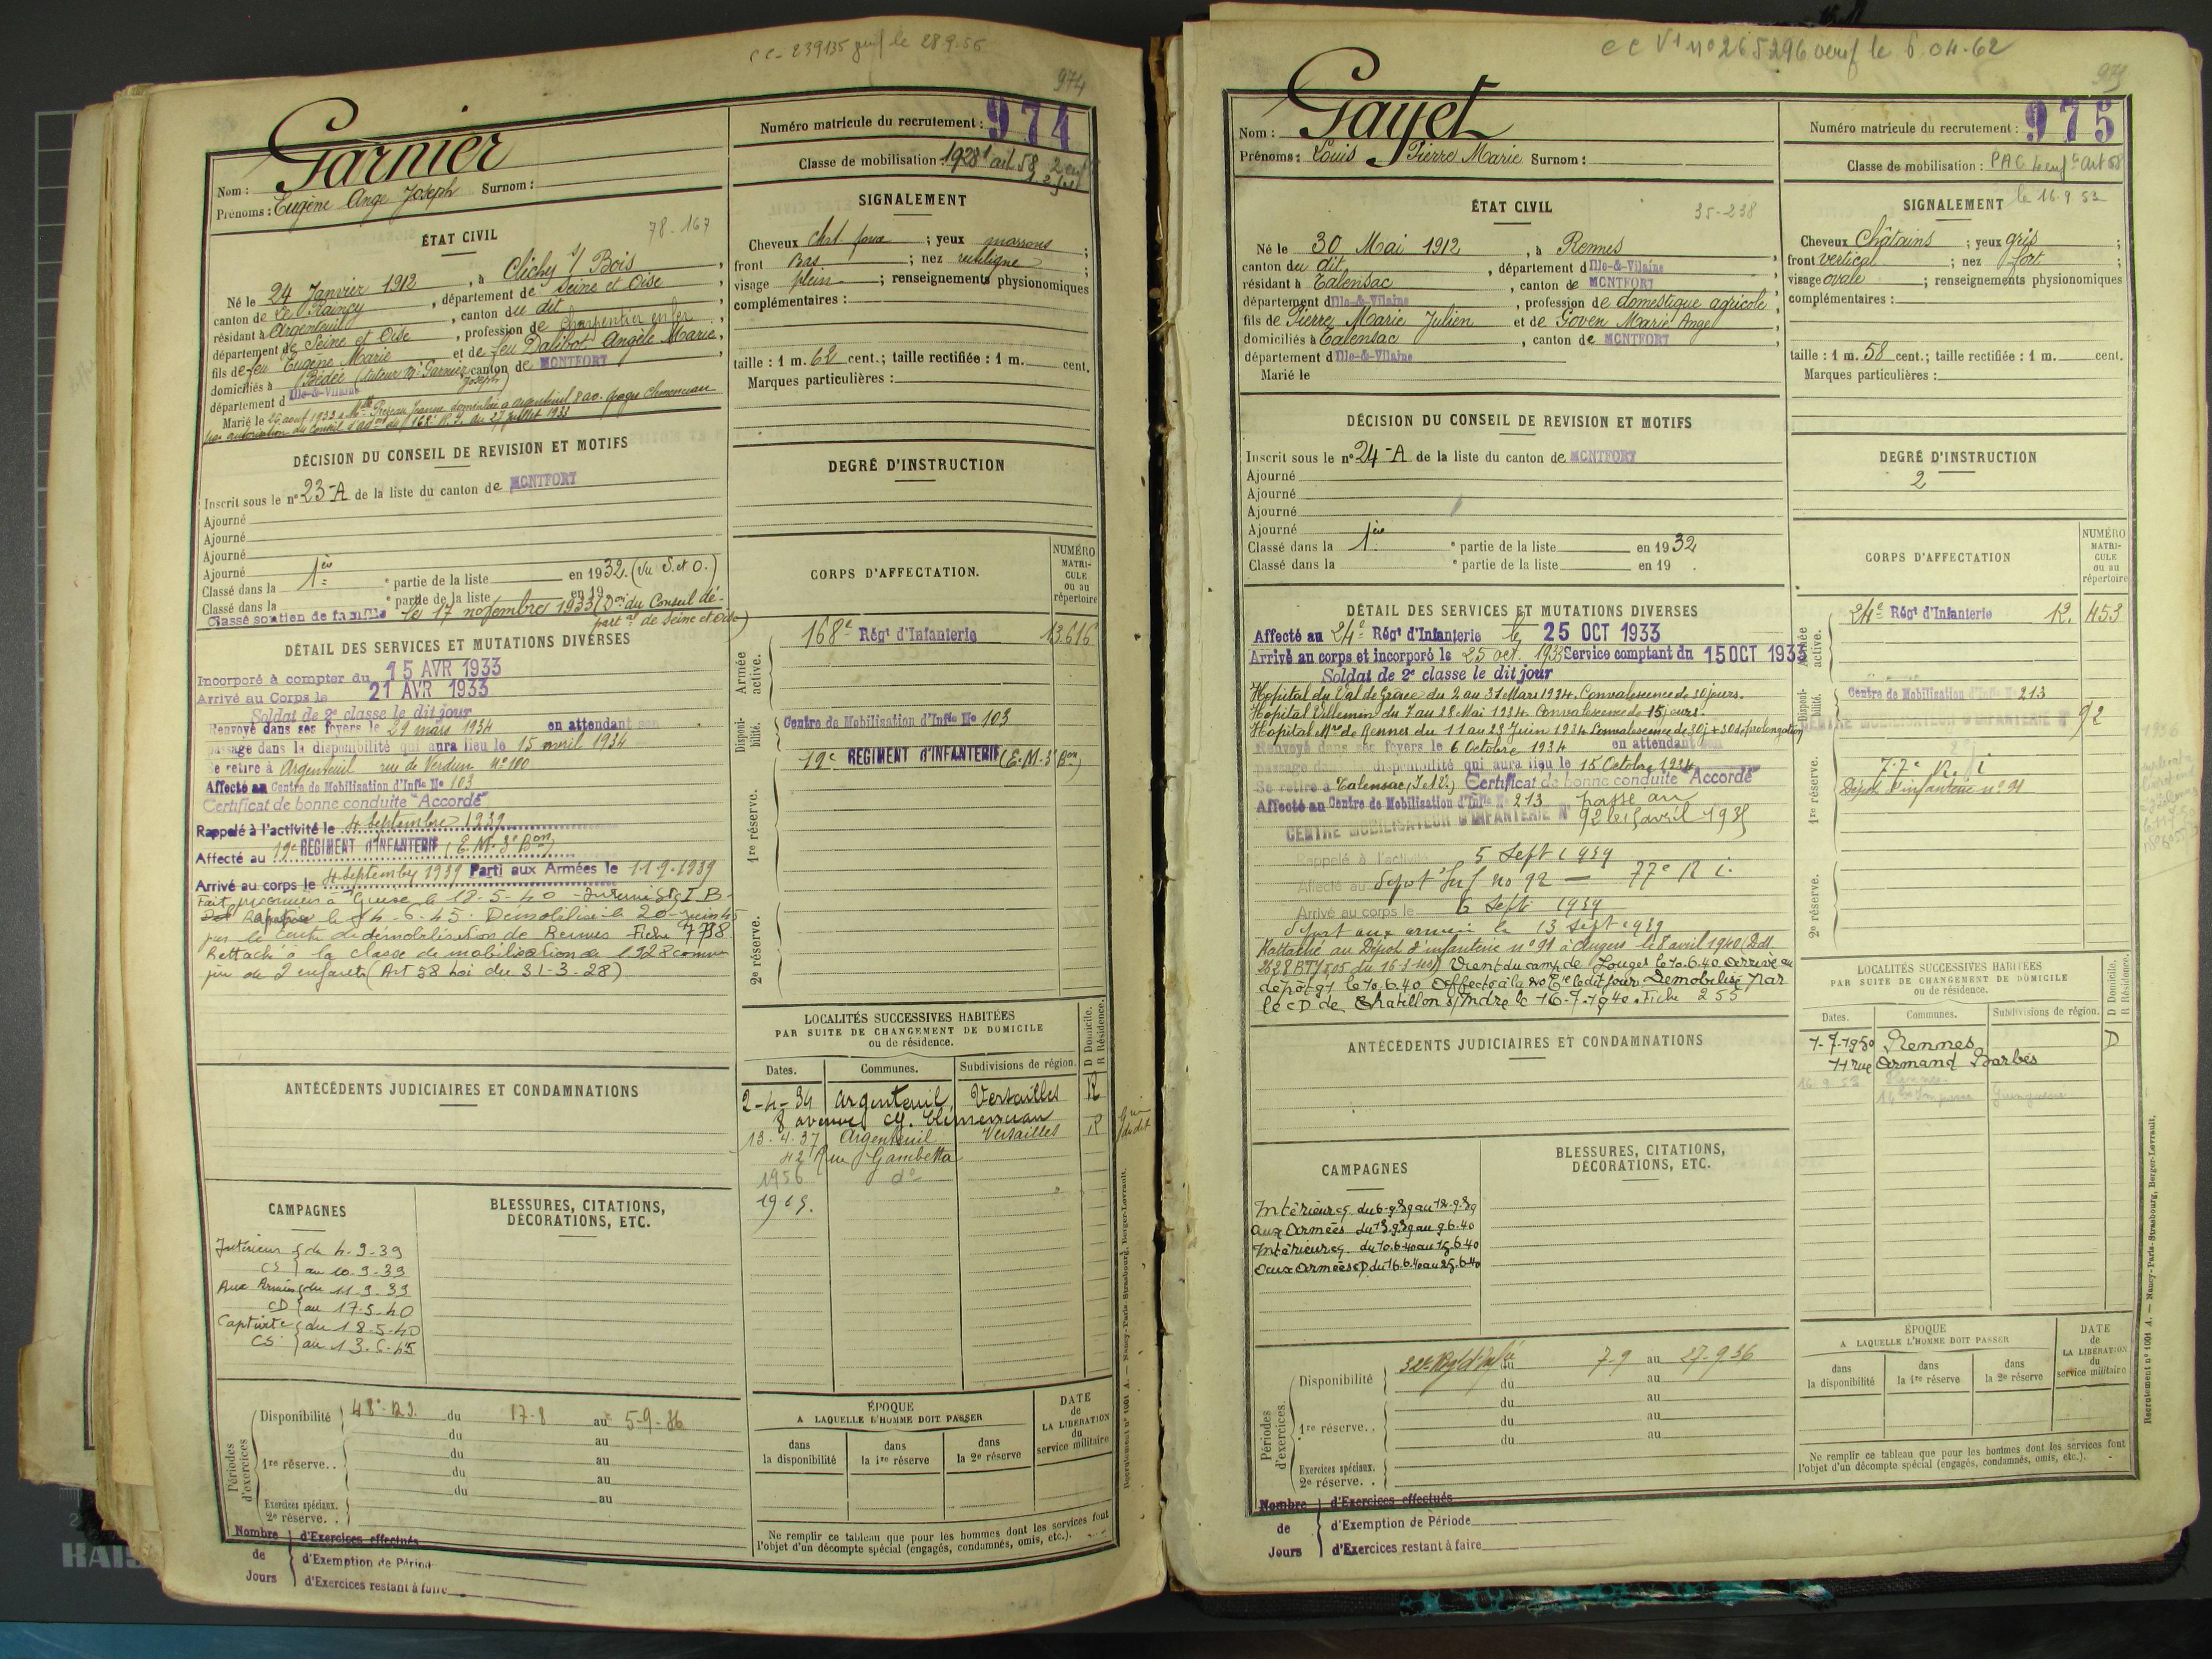 974
Garnier
Nom :
Prénoms : Eugène Ange Joseph Surnom :
Numéro matricule du recrutement : 974
Classe de mobilisation : 1928 art 58 2 enf
ÉTAT CIVIL
78-167
Né le 24 Janvier 1912, à Clichy s/ Bois,
canton de Le Raincy, département de Seine et Oise
résidant à Argenteuil, canton du dit
département de Seine et Oise, profession de Charpentier en fer
fils de feu Eugène Marie et de feu Dalibot Angèle Marie,
domiciliés à Bédée (tuteur Mr Garnier Joseph) canton de MONTFORT
département d Ille-&-Vilaine
Marié le 26 aout 1933 à Melle Jeanne domiciliée à Argenteuil 8 av. Georges Clemenceau
par autorisation du Conseil d'adon du 168e R.I. du 27 juillet 1933
SIGNALEMENT
Cheveux Chat foncé ; yeux marrons ;
front Bas ; nez rectiligne ;
visage plein ; renseignements physionomiques
complémentaires :
taille : 1 m. 62 cent.; taille rectifiée : 1 m. cent.
Marques particulières :
DÉCISION DU CONSEIL DE REVISION ET MOTIFS
Inscrit sous le n° 23-A de la liste du canton de MONTFORT
Ajourné
Ajourné
Ajourné
Ajourné
Classé dans la 1ère partie de la liste en 1932. (Vu S. et O.)
Classé dans la partie de la liste en 19
Classé soutien de famille le 17 novembre 1933 (Don du Conseil départal de Seine et Oise)
DEGRÉ D'INSTRUCTION
DÉTAIL DES SERVICES ET MUTATIONS DIVERSES
Incorporé à compter du 15 AVR 1933
Arrivé au Corps le 21 AVR 1933
Soldat de 2e classe le dit jour
Renvoyé dans ses foyers le 29 mars 1934 en attendant son
passage dans la disponibilité qui aura lieu le 15 avril 1934
Se retire à Argenteuil rue de Verdun n° 100
Affecté au Centre de Mobilisation d'Infie No 103
Certificat de bonne conduite "Accordé"
Rappelé à l'activité le 4 Septembre 1939
Affecté au 19e REGIMENT D'INFANTERIE (E.M. 3e Bon)
Arrivé au corps le 4 septembre 1939 Parti aux Armées le 11-9-1939
Fait prisonnier à Guise le 18-5-40 - Interné Stg I B -
Rapatrié le 14-6-45. Démobilisé le 20 juin 45
par le Centre de démobilisation de Rennes Fiche 7798
Rattaché à la classe de mobilisation de 1928 comme
père de 2 enfants (Art 58 Loi du 31-3-28)
CORPS D'AFFECTATION.
NUMÉRO MATRICULE ou au répertoire
Armée active.
168e Régt d'Infanterie 13.616
Disponibilité.
Centre de Mobilisation d'Infie No 103
19e REGIMENT D'INFANTERIE (E.M. 3e Bon)
1re réserve.
2e réserve.
ANTÉCÉDENTS JUDICIAIRES ET CONDAMNATIONS
LOCALITÉS SUCCESSIVES HABITÉES
PAR SUITE DE CHANGEMENT DE DOMICILE
ou de résidence.
D Domicile.
R Résidence.
Dates. Communes. Subdivisions de région.
2-4-34 Argenteuil Versailles R
8 avenue G. Clémenceau
13.4.37 Argenteuil Versailles R
42 rue Gambetta
1956 do
CAMPAGNES
Intérieur du 4-9-39
CS au 10-9-39
Aux Armées du 11-9-39
CD au 17-5-40
Captivité du 18-5-40
CS au 13-6-45
BLESSURES, CITATIONS,
DÉCORATIONS, ETC.
Périodes d'exercices
Disponibilité du 17-8 au 5-9-36
du au
1re réserve.. du au
du au
du au
Exercices spéciaux.
2e réserve. . au
Nombre de Jours
d'Exercices effectués
d'Exemption de Période
d'Exercices restant à faire
ÉPOQUE
A LAQUELLE L'HOMME DOIT PASSER
dans la disponibilité
dans la 1re réserve
dans la 2e réserve
DATE de LA LIBÉRATION du service militaire
Ne remplir ce tableau que pour les hommes dont les services font
l'objet d'un décompte spécial (engagés, condamnés, omis, etc.).
Recrutement n° 1001 A. — Nancy-Paris-Strasbourg, Berger-Levrault.
975
Nom : Gayet
Prénoms : Louis Pierre Marie Surnom :
Numéro matricule du recrutement : 975
Classe de mobilisation : PAC 4 enfts art 58
le 16-9-53
ÉTAT CIVIL
35-238
Né le 30 Mai 1912, à Rennes,
canton du dit, département d Ille-&-Vilaine
résidant à Talensac, canton de MONTFORT
département d Ille-&-Vilaine, profession de domestique agricole,
fils de Pierre Marie Julien et de Goven Marie Ange,
domiciliés à Talensac, canton de MONTFORT
département d Ille-&-Vilaine
Marié le
SIGNALEMENT
Cheveux Châtains ; yeux gris ;
front vertical ; nez fort ;
visage ovale ; renseignements physionomiques
complémentaires :
taille : 1 m. 58 cent.; taille rectifiée : 1 m. cent.
Marques particulières :
DÉCISION DU CONSEIL DE REVISION ET MOTIFS
Inscrit sous le n° 24-A de la liste du canton de MONTFORT
Ajourné
Ajourné
Ajourné
Ajourné
Classé dans la 1ère partie de la liste en 1932
Classé dans la partie de la liste en 19 .
DEGRÉ D'INSTRUCTION
2
DÉTAIL DES SERVICES ET MUTATIONS DIVERSES
Affecté au 24e Régt d'Infanterie le 25 OCT 1933
Arrivé au corps et incorporé le 25 oct. 1933 Service comptant du 15 OCT 1933
Soldat de 2e classe le dit jour
Hopital du Val de Grâce du 2 au 31 Mars 1934. Convalescence de 30 jours.
Hopital Villemin du 7 au 28 Mai 1934. Convalescence de 15 jours.
Hopital Mre de Rennes du 11 au 23 Juin 1934 Convalescence de 30 j + 30 de prolongation
Renvoyé dans ses foyers le 6 Octobre 1934 en attendant son
passage dans la disponibilité qui aura lieu le 15 Octobre 1934
Se retire à Talensac (I et V.) Certificat de bonne conduite "Accordé"
Affecté au Centre de Mobilisation d'Infie No 213 passe au
CENTRE MOBILISATEUR D'INFANTERIE N° 92 le 15 avril 1935
Rappelé à l'activité 5 Sept 1939
Affecté au Dépôt Inf no 92 — 77e R i.
Arrivé au corps le 6 Sept 1939
départ aux armées le 13 sept 1939
Rattaché au Dépôt d'infanterie n° 91 à Angers le 8 avril 1940
Vient du camp de Souges le 10.6.40 Arrivé au
dépôt 91 le 10.6.40 Affecté à la 20 Cie le dit jour Démobilisé par
le CD de Chatillon s/Indre le 16-7-1940. Fiche 255
CORPS D'AFFECTATION
NUMÉRO MATRICULE ou au répertoire
Armée active.
24e Régt d'Infanterie 12.453
Disponibilité.
Centre de Mobilisation d'Infie No 213
CENTRE MOBILISATEUR D'INFANTERIE N° 92
1re réserve.
77e R.I
Dépôt d'infanterie n° 91
2e réserve.
ANTÉCÉDENTS JUDICIAIRES ET CONDAMNATIONS
LOCALITÉS SUCCESSIVES HABITÉES
PAR SUITE DE CHANGEMENT DE DOMICILE
ou de résidence.
D Domicile.
R Résidence.
Dates. Communes. Subdivisions de région.
1-7-1950 Rennes D
11 rue Armand Barbès
16.9.53 Rennes
CAMPAGNES
Intérieur CS. du 6-9-39 au 12-9-39
aux Armées du 13.9.39 au 9.6.40
Intérieur CS. du 10.6.40 au 15.6.40
aux Armées CD du 16.6.40 au 25.6.40
BLESSURES, CITATIONS,
DÉCORATIONS, ETC.
Périodes d'exercices.
Disponibilité du 7-9 au 27-9-36
du au
du au
1re réserve.. du au
du au
Exercices spéciaux.
2e réserve. .
Nombre de Jours
d'Exercices effectués
d'Exemption de Période
d'Exercices restant à faire
ÉPOQUE
A LAQUELLE L'HOMME DOIT PASSER
dans la disponibilité
dans la 1re réserve
dans la 2e réserve
DATE de LA LIBÉRATION du service militaire
Ne remplir ce tableau que pour les hommes dont les services font
l'objet d'un décompte spécial (engagés, condamnés, omis, etc.).
Recrutement n° 1001 A. — Nancy-Paris-Strasbourg, Berger-Levrault.